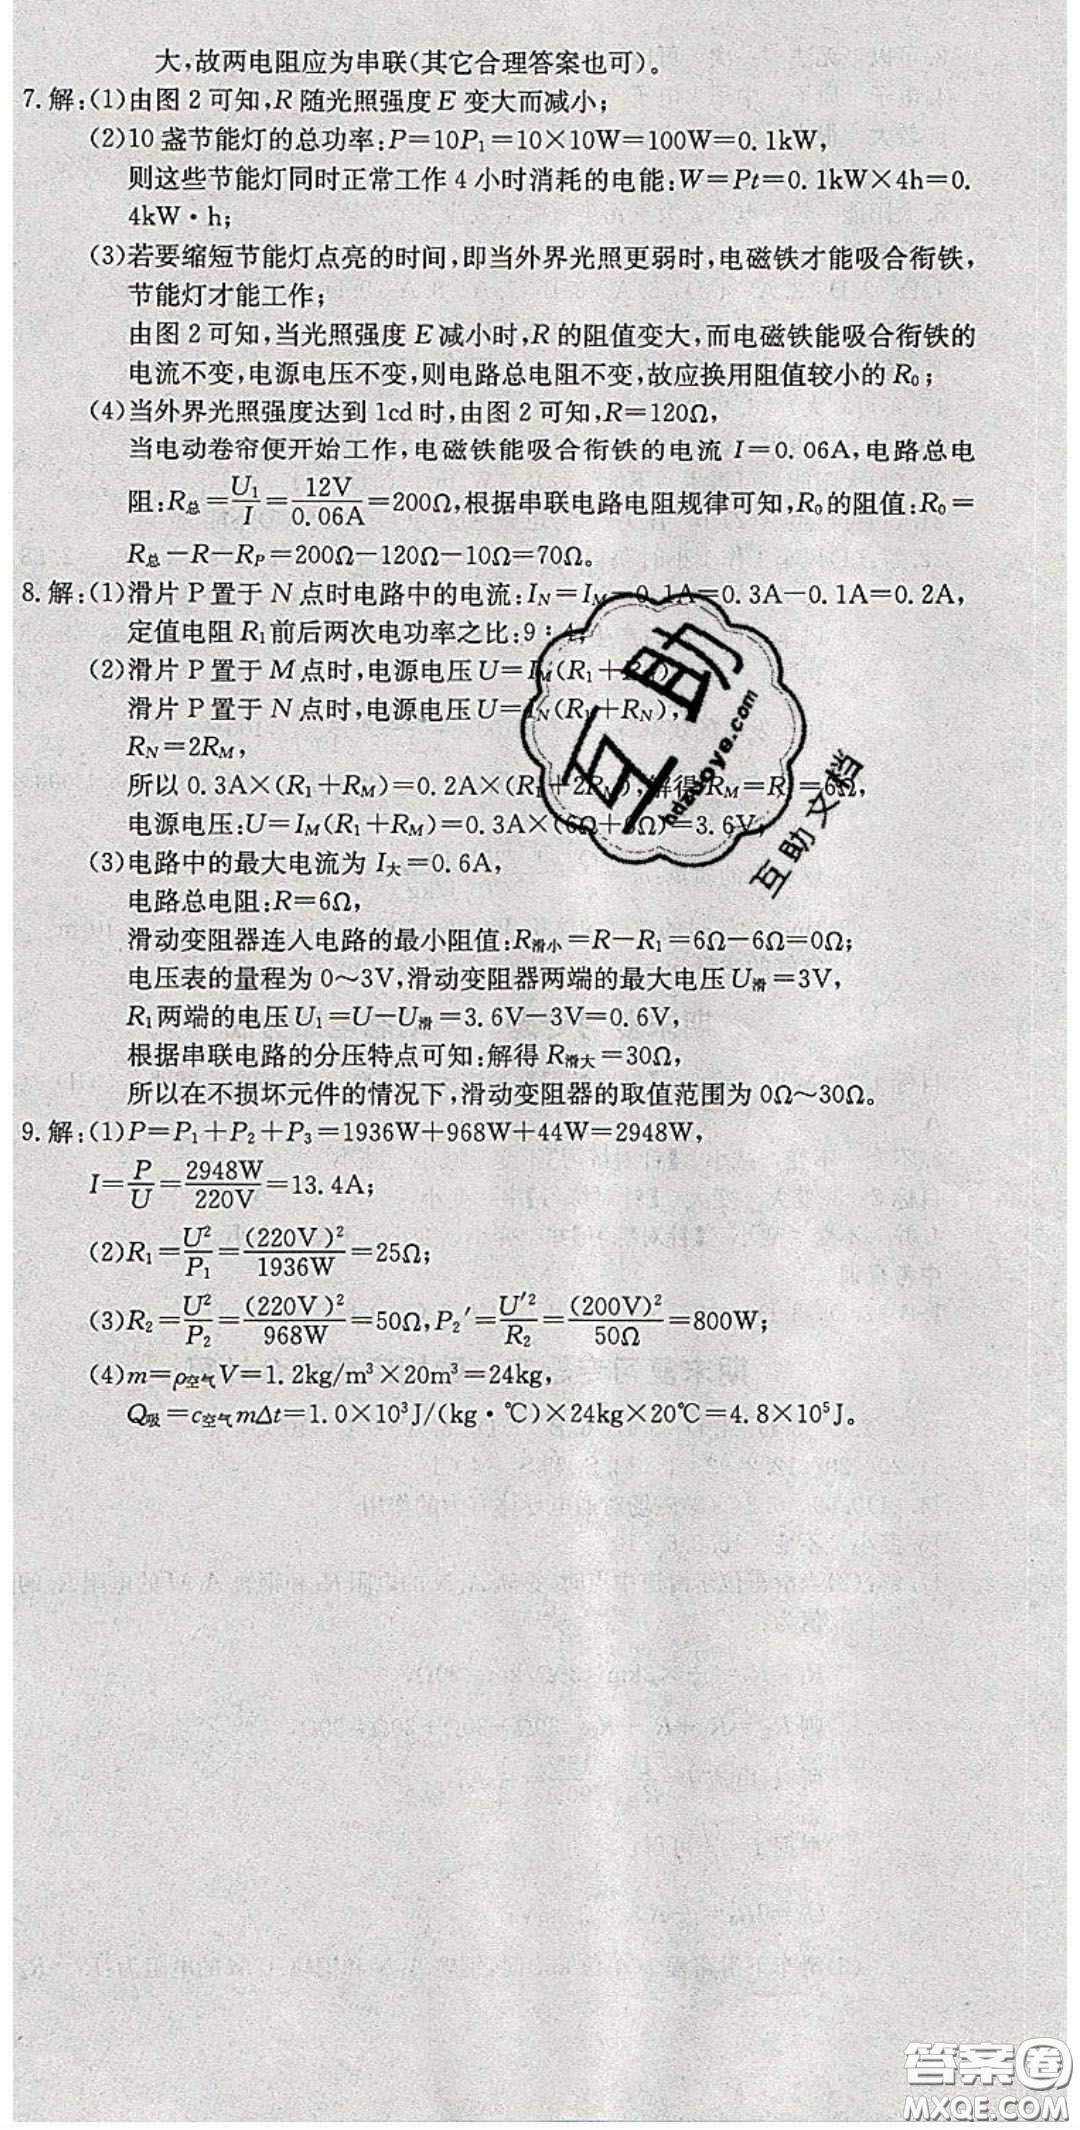 大,故两电阻应为串联(其它合理答案也可)。
7.解:(1)由图2可知,R随光照强度E变大而减小;
(2)10盏节能灯的总功率:P=10P₁=10×10W=100W=0.1kW,
则这些节能灯同时正常工作4小时消耗的电能:W=Pt=0.1kW×4h=0.
4kW·h;
(3)若要缩短节能灯点亮的时间,即当外界光照更弱时,电磁铁才能吸合衔铁,
节能灯才能工作;
由图2可知,当光照强度E减小时,R的阻值变大,而电磁铁能吸合衔铁的
电流不变,电源电压不变,则电路总电阻不变,故应换用阻值较小的R₀;
(4)当外界光照强度达到1cd时,由图2可知,R=120Ω,
当电动卷帘便开始工作,电磁铁能吸合衔铁的电流I=0.06A,电路总电
阻:R总=U₁/I=12V/0.06A=200Ω,根据串联电路电阻规律可知,R₀的阻值:R₀=
R总−R−R_P=200Ω−120Ω−10Ω=70Ω。
8.解:(1)滑片P置于N点时电路中的电流:I_N=I_M−0.1A=0.3A−0.1A=0.2A,
定值电阻R₁前后两次电功率之比:9:4;
(2)滑片P置于M点时,电源电压U=I_M(R₁+R_M),
滑片P置于N点时,电源电压U=I_N(R₁+R_N),
R_N=2R_M,
所以0.3A×(R₁+R_M)=0.2A×(R₁+2R_M),解得:R_M=R₁=6Ω,
电源电压:U=I_M(R₁+R_M)=0.3A×(6Ω+6Ω)=3.6V;
(3)电路中的最大电流为I大=0.6A,
电路总电阻:R=6Ω,
滑动变阻器连入电路的最小阻值:R滑小=R−R₁=6Ω−6Ω=0Ω;
电压表的量程为0~3V,滑动变阻器两端的最大电压U滑=3V,
R₁两端的电压U₁=U−U滑=3.6V−3V=0.6V,
根据串联电路的分压特点可知:解得R滑大=30Ω,
所以在不损坏元件的情况下,滑动变阻器的取值范围为0Ω~30Ω。
9.解:(1)P=P₁+P₂+P₃=1936W+968W+44W=2948W,
I=P/U=2948W/220V=13.4A;
(2)R₁=U²/P₁=(220V)²/1936W=25Ω;
(3)R₂=U²/P₂=(220V)²/968W=50Ω,P₂′=U′²/R₂=(200V)²/50Ω=800W;
(4)m=ρ空气V=1.2kg/m³×20m³=24kg,
Q吸=c空气mΔt=1.0×10³J/(kg·℃)×24kg×20℃=4.8×10⁵J。
互助
hdzuoye.com
互助文档
答案圈
MXQE.COM